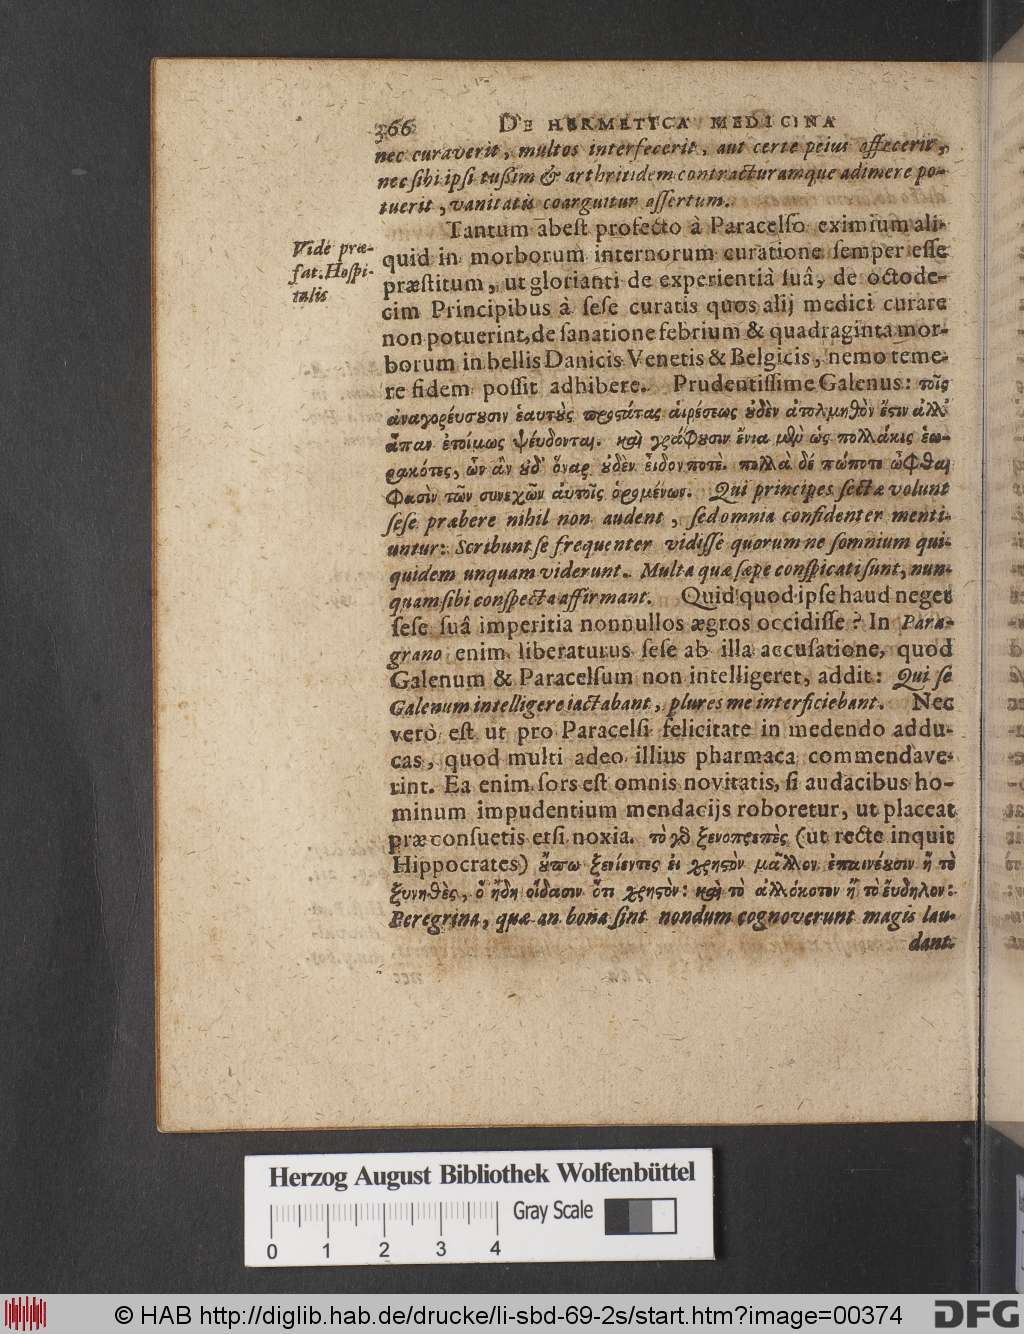 366 DE HERMETICA MEDICINA
nec curaverit, multos interfecerit, aut certe peius affecerit,
nec sibi ipsi tussim & arthritidem contracturamque adimere po-
tuerit, vanitatis coarguitur assertum.
Tantum abest profecto à Paracelso eximium ali-
Vide præ-
fat. Hospi-
talis
quid in morborum internorum curatione semper esse
præstitum, ut glorianti de experientiâ suâ, de octode-
cim Principibus à sese curatis quos alij medici curare
non potuerint, de sanatione febrium & quadraginta mor-
borum in bellis Danicis Venetis & Belgicis, nemo teme-
re fidem possit adhibere. Prudentissime Galenus: τοῖς
ἀναγορέυσουσιν ἑαυτοὺς προστάτας αἱρέσεως οὐδὲν ἀτολμηθὸν ἔστιν ἀλλ'
ἅπαν ἑτοίμως ψέυδονται. καὶ γράφουσιν ἔνια μὲν ὡς πολλάκις ἑω-
ρακότες, ὧν ἂν οὐδ' ὄναρ οὐδὲν εἶδον ποτὲ. πολλὰ δέ πώποτε ὦφθαι
φασὶν τῶν συνεχῶν ἀυτοῖς ὁρομένων. Qui principes sectæ volunt
sese præbere nihil non audent, sed omnia confidenter menti-
untur: Scribunt se frequenter vidisse quorum ne somnium qui-
quidem unquam viderunt. Multa quæ sæpe conspicati sunt, nun-
quam sibi conspecta affirmant. Quid quod ipse haud neget
sese suâ imperitia nonnullos ægros occidisse? In Para-
grano enim liberaturus sese ab illa accusatione, quod
Galenum & Paracelsum non intelligeret, addit: Qui se
Galenum intelligere iactabant, plures me interficiebant. Nec
verò est ut pro Paracelsi felicitate in medendo addu-
cas, quod multi adeo illius pharmaca commendave-
rint. Ea enim sors est omnis novitatis, si audacibus ho-
minum impudentium mendacijs roboretur, ut placeat
præ consuetis etsi noxia. τὸ γὸ ξενοπρεπὲς (ut recte inquit
Hippocrates) οὔπω ξενίεντες εἰ χρηστὸν μᾶλλον ἐπαινέουσιν ἢ τὸ
ξυνηθὲς, ὅ ἤδη οἴδασιν ὅτι χρηστὸν: καὶ τὸ ἀλλόκοτον ἢ τὸ ἔυδηλον:
Peregrina, quæ an bona sint nondum cognoverunt magis lau-
dant.
Herzog August Bibliothek Wolfenbüttel
Gray Scale
0 1 2 3 4
© HAB http://diglib.hab.de/drucke/li-sbd-69-2s/start.htm?image=00374
DFG